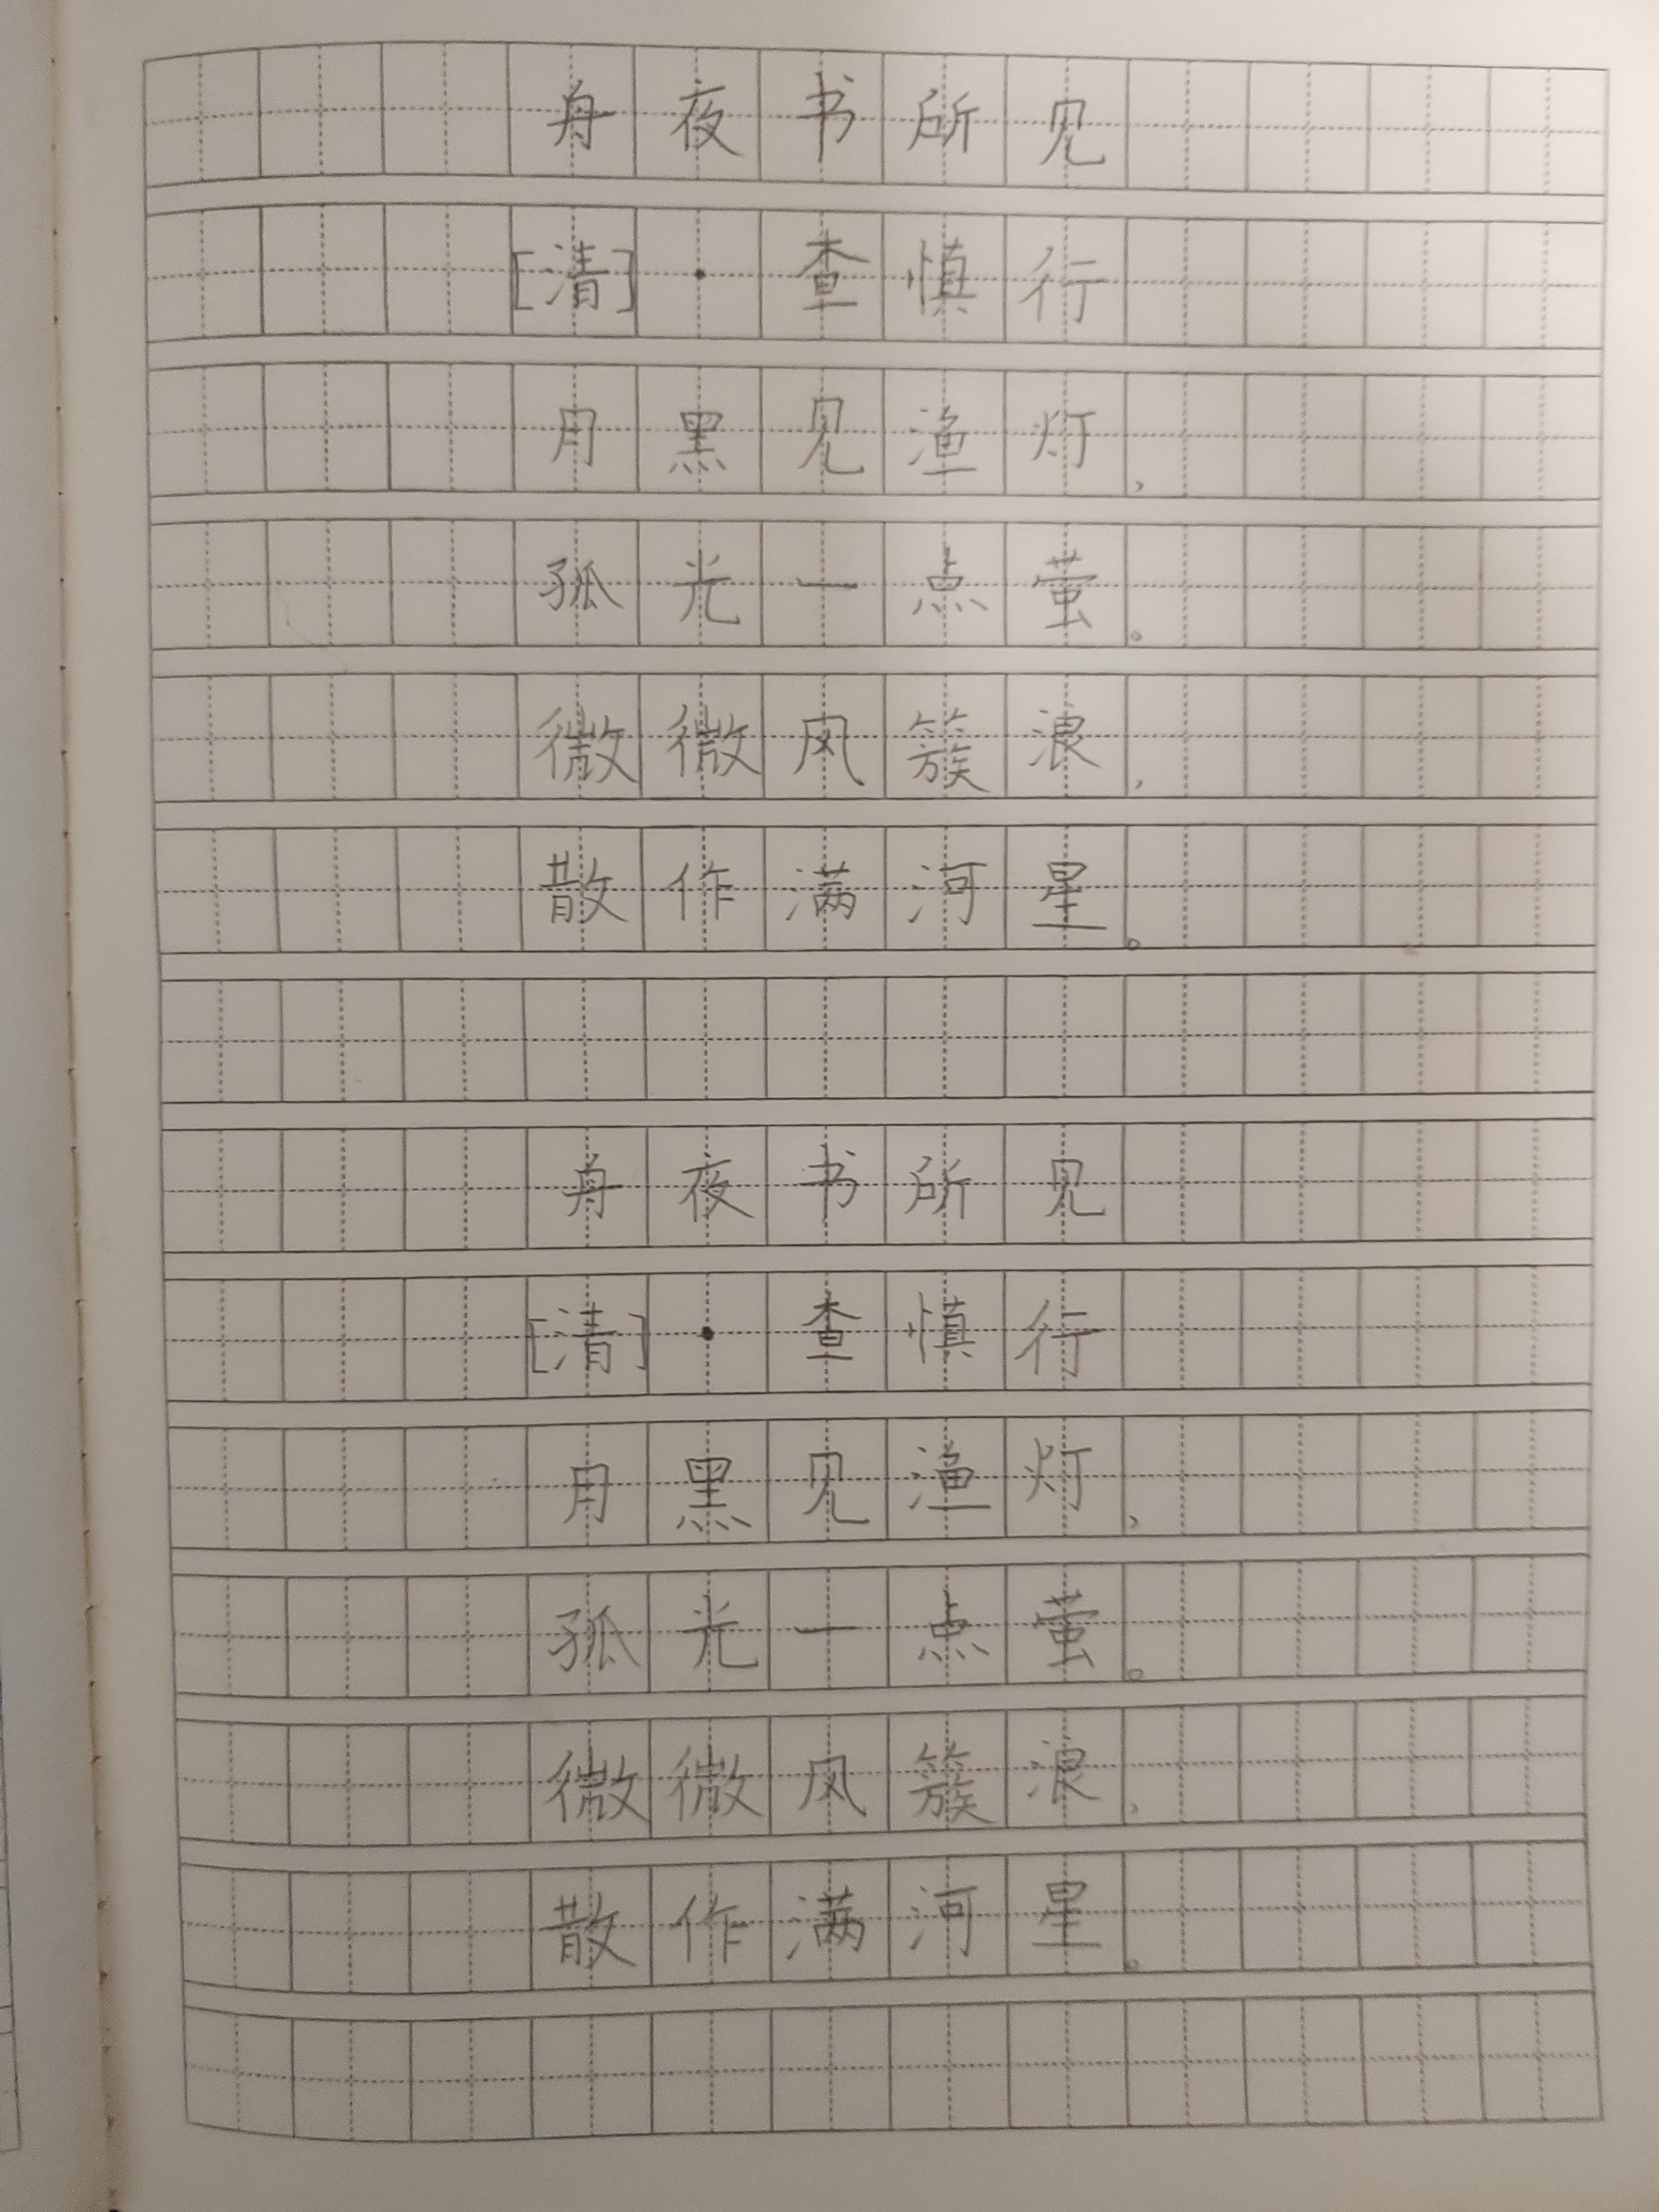 舟夜书所见
[清]·查慎行
月黑见渔灯，
孤光一点萤。
微微风簇浪，
散作满河星。
舟夜书所见
[清]·查慎行
月黑见渔灯，
孤光一点萤。
微微风簇浪，
散作满河星。